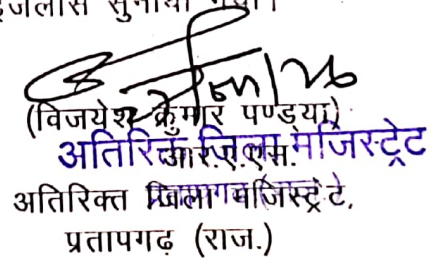 इजलास सुनाया गया।
(विजयेश कुमार पण्डया)
आर.ए.एस.
अतिरिक्त जिला मजिस्ट्रेट
अतिरिक्त जिला मजिस्ट्रेट,
प्रतापगढ़ (राज.)